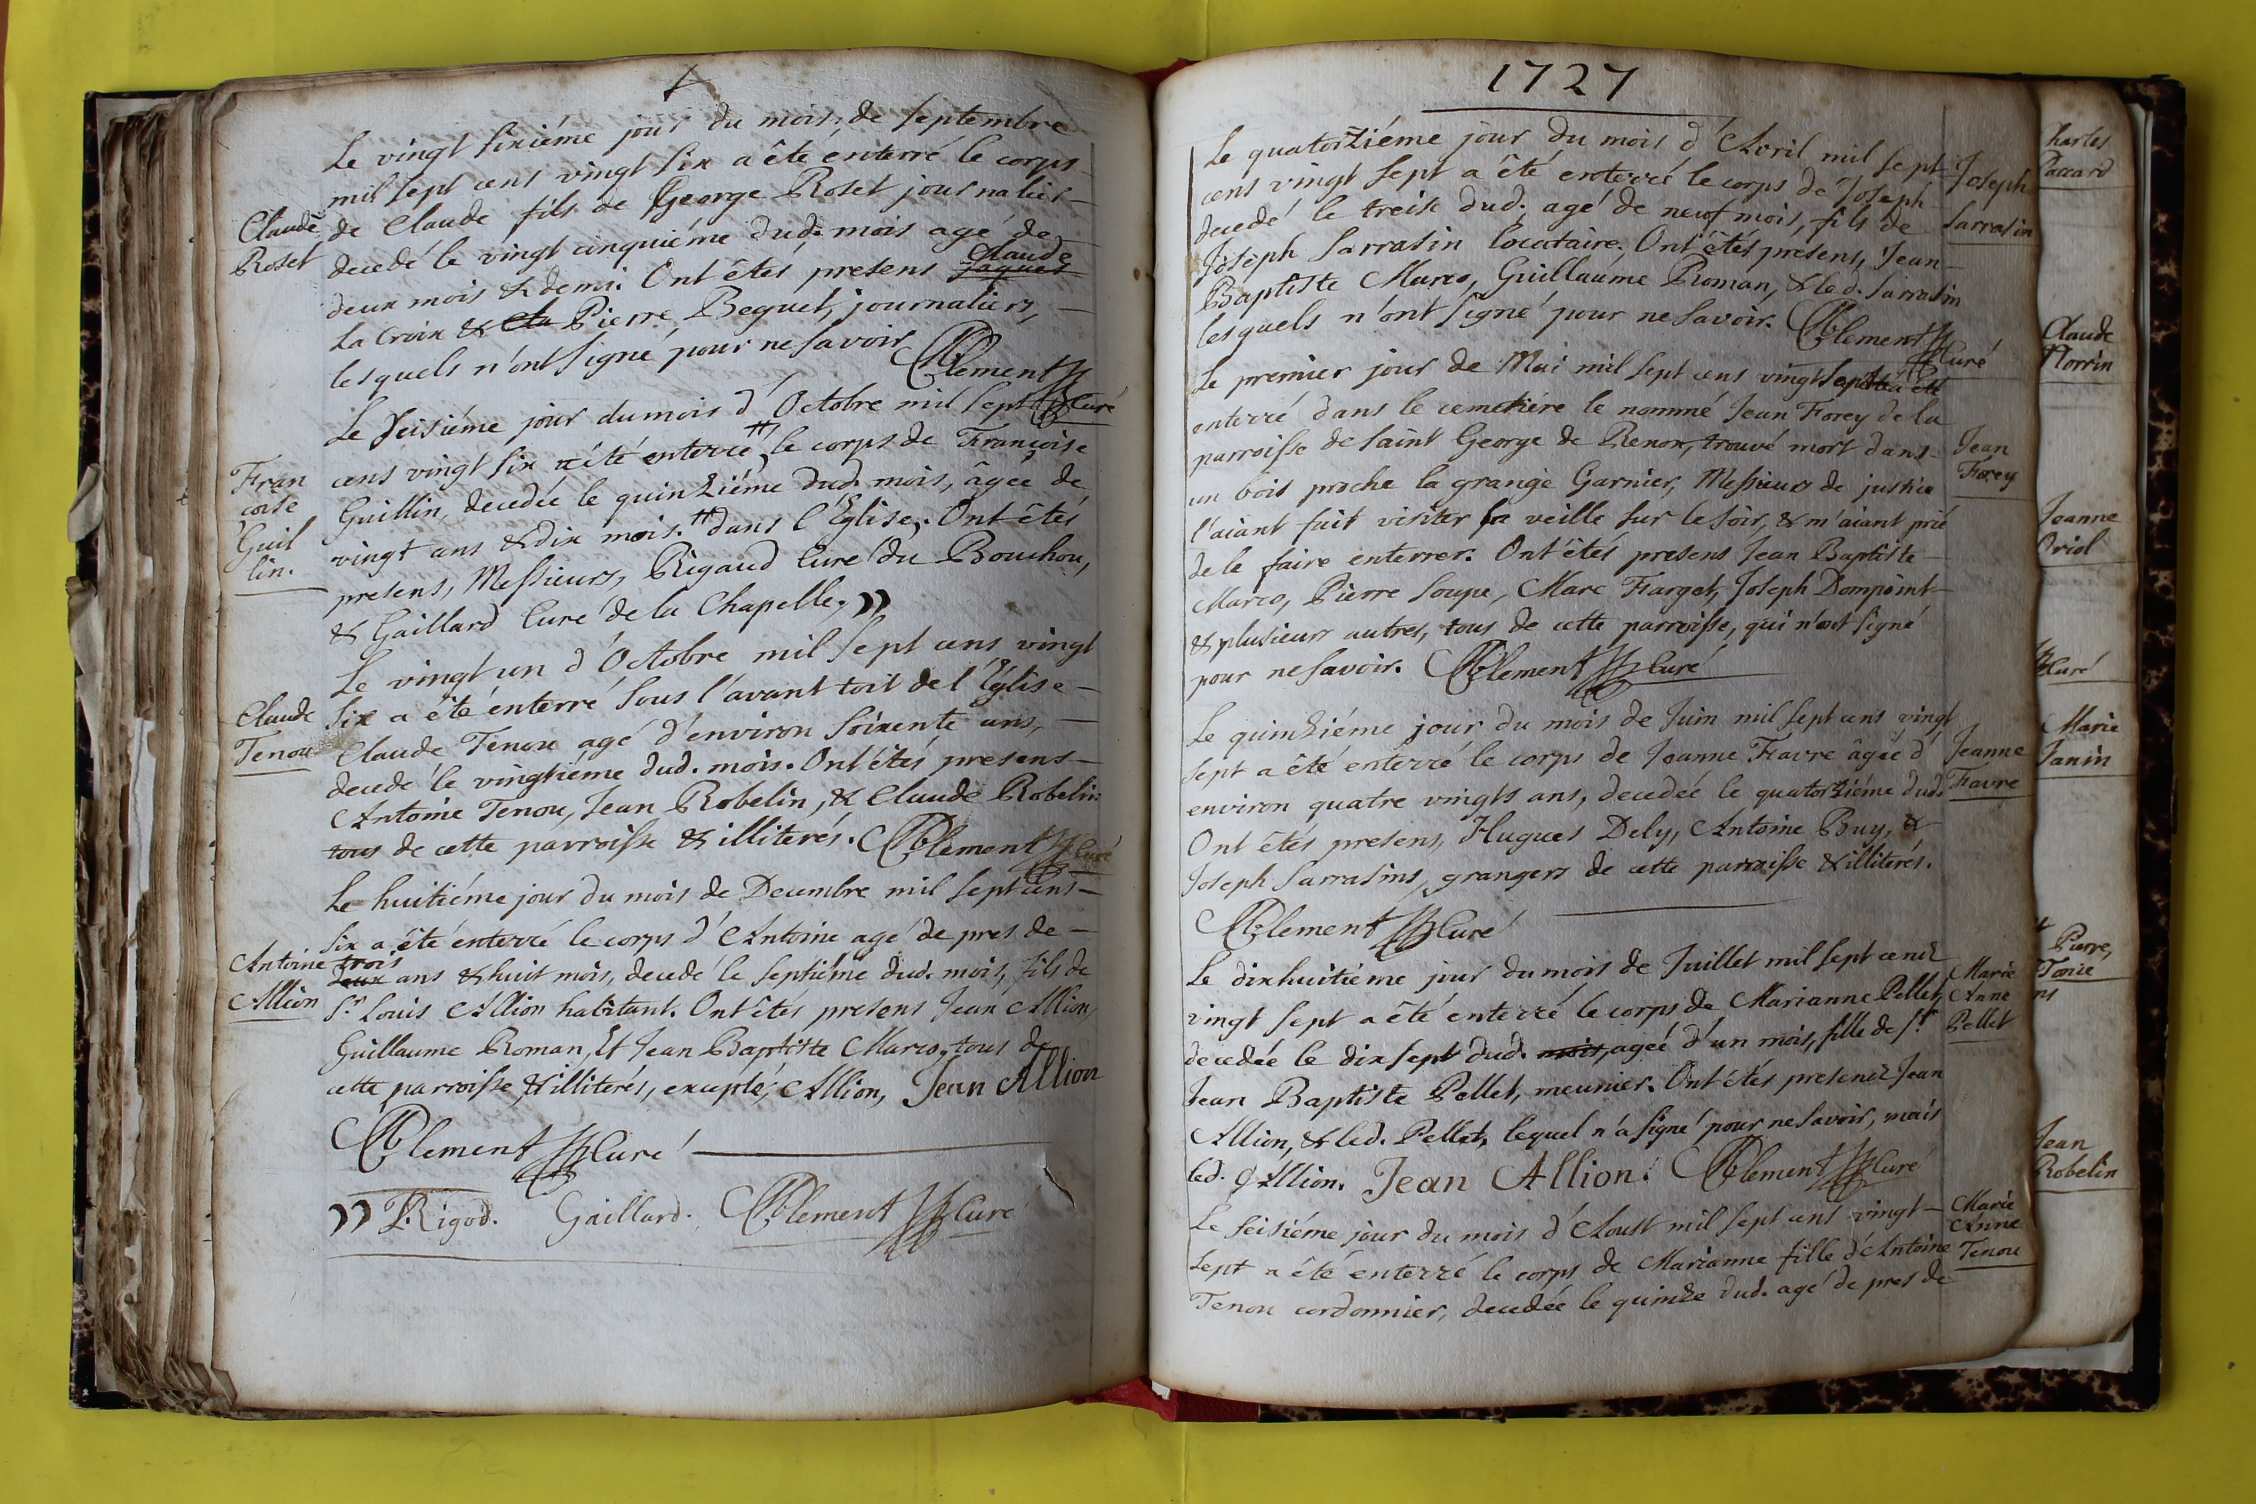 Le vingt sixiéme jour du mois de septembre
mil sept cens vingt six a êté enterré le corps
Claude
Roset
de Claude fils de George Roset journalier
decedé le vingt cinquiéme dud. mois agé de
deux mois & demi. Ont êtés presens Jaques Claude
La Croix & Cla Pierre Beguet, journaliers,
lesquels n'ont signé pour ne savoir. Clement Curé
Le seisiéme jour du mois d'Octobre mil sept
Fran
coise
Guil
lin.
cens vingt six a êté enterré # le corps de Françoise
Guillin, decedée le quinziéme dud. mois, âgée de
vingt ans & dix mois. # dans l'Eglise. Ont êtés
presens, Messieurs, Rigaud Curé du Bouchou,
& Gaillard Curé de la Chapelle. ))
Le vingt un d'Octobre mil sept cens vingt
Claude
Tenou
six a êté enterré sous l'avant toit de l'Eglise
Claude Tenou agé d'environ soixente ans,
decedé le vingtiéme dud. mois. Ont êtés presens
Antoine Tenou, Jean Robelin, & Claude Robelin
tous de cette parroisse & illiterés. Clement Curé
Le huitiéme jour du mois de Decembre mil sept cens
Antoine
Allion
six a êté enterré le corps d'Antoine agé de pres de
deux trois ans & huit mois, decedé le septiéme dud. mois, fils de
Sr. Louis Allion habitant. Ont êtés presens Jean Allion,
Guillaume Roman, Et Jean Baptiste Marco, tous de
cette parroisse & illiterés, excepté, Allion, Jean Allion
Clement Curé
)) Rigod. Gaillard. Clement Curé
1727
Le quatorziéme jour du mois d'Avril mil sept
cens vingt sept a êté enterré le corps de Joseph
Joseph
Sarrasin
decedé le treise dud. agé de neuf mois, fils de
Joseph Sarrasin locataire. Ont êtés presens, Jean
Baptiste Marco, Guillaume Roman, & led. Sarrasin
lesquels n'ont signé pour ne savoir. Clement Curé
Le premier jour de Mai mil sept cens vingt sept a êté
enterré dans le cemetiére le nommé Jean Forey de la
Jean
Forey
parroisse de saint George de Renon, trouvé mort dans
un bois proche la grange Garnier, Messieurs de justice
l'aiant fait visiter la veille sur le soir, & m'aiant prié
de le faire enterrer. Ont êtés presens Jean Baptiste
Marco, Pierre Soupe, Marc Farget, Joseph Dompoint
& plusieurs autres, tous de cette parroisse, qui n'ont signé
pour ne savoir. Clement Curé
Le quinziéme jour du mois de Juin mil sept cens vingt
Jeanne
Favre
sept a êté enterré le corps de Jeanne Favre âgée d'
environ quatre vingts ans, decedée le quatorziéme dud.
Ont êtés presens, Hugues Dely, Antoine Buy, &
Joseph Sarrasins, grangers de cette parroisse & illiterés.
Clement Curé
Le dixhuitiéme jour du mois de Juillet mil sept cenz
Marie
Anne
Pellet
vingt sept a êté enterré le corps de Marianne Pellet,
decedée le dix sept dud. mois, ageé d'un mois, fille de Sr.
Jean Baptiste Pellet, meunier. Ont êtés presenz Jean
Allion, & led. Pellet, lequel n'a signé pour ne savoir, mais
led. Allion. Jean Allion. Clement Curé
Le seisiéme jour du mois d'Aoust mil sept cens vingt
Marie
Anne
Tenou
sept a êté enterré le corps de Marianne fille d'Antoine
Tenou cordonnier, decedée le quinze dud. agé de pres de
harles
Paccard
Claude
Morrin
Jeanne
Oriol
Curé
Marie
Janin
Pierre,
Jean
Robelin